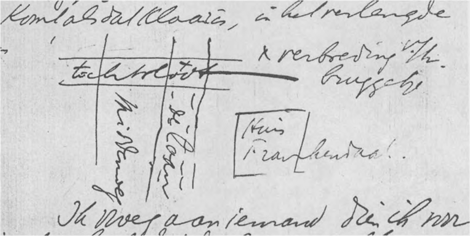 Kom[t] als dat klaar is, in het verlengde
x verbreding v/h
tochtsloot
bruggetje
Middenweg
de Laan
Huis
Frankendaal.
Ik vroeg aan iemand die ik voor